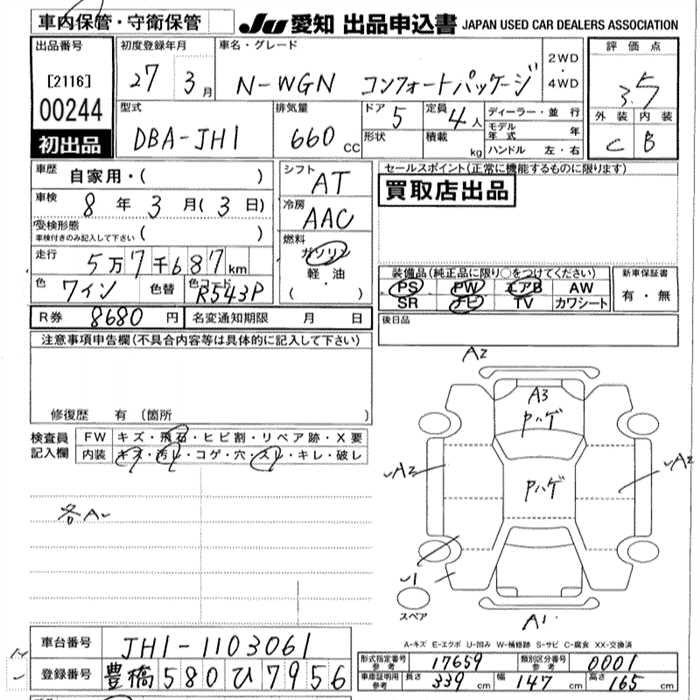 車内保管・守衛保管 JU 愛知 出品申込書 JAPAN USED CAR DEALERS ASSOCIATION
出品番号 初度登録年月 車名・グレード 2WD・4WD 評価点
[2116] 27 3月 N-WGN コンフォートパッケージ 3.5
00244 型式 排気量 ドア 5 定員 4人 ディーラー・並行 外装 内装
初出品 DBA-JH1 660cc 形状 積載 kg モデル年式 年 C B
ハンドル 左・右
車歴 自家用・( ) シフト AT セールスポイント(正常に機能するものに限ります)
車検 8年3月(3日) 冷房 AAC 買取店出品
受検形態 ( )
車検付きのみ記入して下さい
燃料 ガソリン 軽油 ( ・ )
走行 5万7千687km 装備品(純正品に限り○をつけてください) 新車保証書
色 ワイン 色替 色コード R543P PS PW エアB AW 有・無
SR ナビ TV カワシート
R券 8680円 名変通知期限 月 日 後日品
注意事項申告欄(不具合内容等は具体的に記入して下さい)
A2
A3
Pハゲ
修復歴 有 (箇所 )
検査員記入欄 FW キズ・飛石・ヒビ割・リペア跡・X要
内装 キズ・汚レ・コゲ・穴・スレ・キレ・破レ
A2 Pハゲ A2
各A
スペア A1
A-キズ E-エクボ U-凹み W-補修跡 S-サビ C-腐食 XX-交換済
車台番号 JH1-1103061
登録番号 豊橋580ひ7956
形式指定番号参考 17659 類別区分番号参考 0001
車庫証明用参考 長さ 339cm 幅 147cm 高さ 165cm